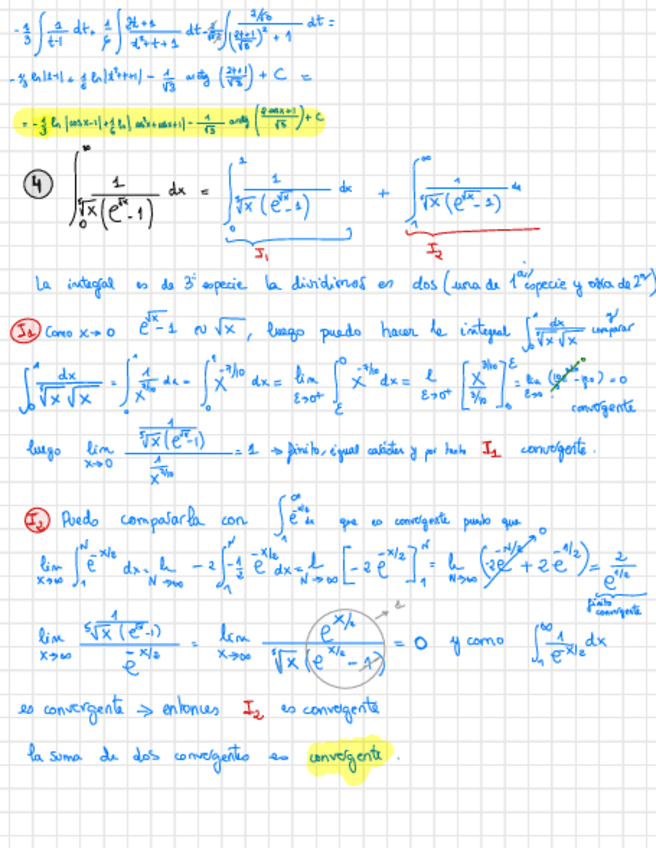 -1/3 ∫ 1/(t-1) dt + 1/6 ∫ (2t+1)/(t²+t+1) dt - ∫ (2/√3)/(((2t+1)/√3)² + 1) dt =
-1/3 ln|t-1| + 1/6 ln|t²+t+1| - 1/√3 arctg ((2t+1)/√3) + C =
= -1/3 ln |cosx-1| + 1/6 ln| cos²x+cosx+1| - 1/√3 arctg ((2cosx+1)/√3) + C
④ ∫₀^∞ 1/(⁵√x (e^√x - 1)) dx = ∫₀¹ 1/(⁵√x (e^√x - 1)) dx + ∫₁^∞ 1/(⁵√x (e^√x - 1)) dx
I₁ I₂
La integral es de 3ª especie la dividimos en dos (una de 1ª especie y otra de 2ª)
I₁ Como x→0 e^√x - 1 ~ √x, luego puedo hacer la integral ∫₀¹ dx/(⁵√x √x) y comparar
∫₀¹ dx/(⁵√x √x) = ∫₀¹ 1/x^(7/10) dx = ∫₀¹ x^(-7/10) dx = lim ε→0⁺ ∫ x^(-7/10) dx = l ε→0⁺ [x^(3/10)/(3/10)] = lim ε→0 = 0
convergente
luego lim x→0 (1/(⁵√x(e^√x-1)))/(1/x^(7/10)) = 1 → finito, igual carácter y por tanto I₁ convergente.
I₂ Puedo compararla con ∫₁^∞ e^(-x/2) dx que es convergente puesto que
lim x→∞ ∫₁^N e^(-x/2) dx = l N→∞ -2 ∫₁^N -1/2 e^(-x/2) dx = l N→∞ [-2e^(-x/2)]₁^N = l N→∞ (-2e^(-N/2) + 2e^(-1/2)) = 2/e^(1/2)
0
finito convergente
lim x→∞ (1/(⁵√x (e^√x-1)))/e^(-x/2) = lim x→∞ e^(x/2)/(⁵√x (e^(x/2) - 1)) = 0 y como ∫₁^∞ 1/e^(x/2) dx
es convergente → entonces I₂ es convergente
la suma de dos convergentes es convergente.